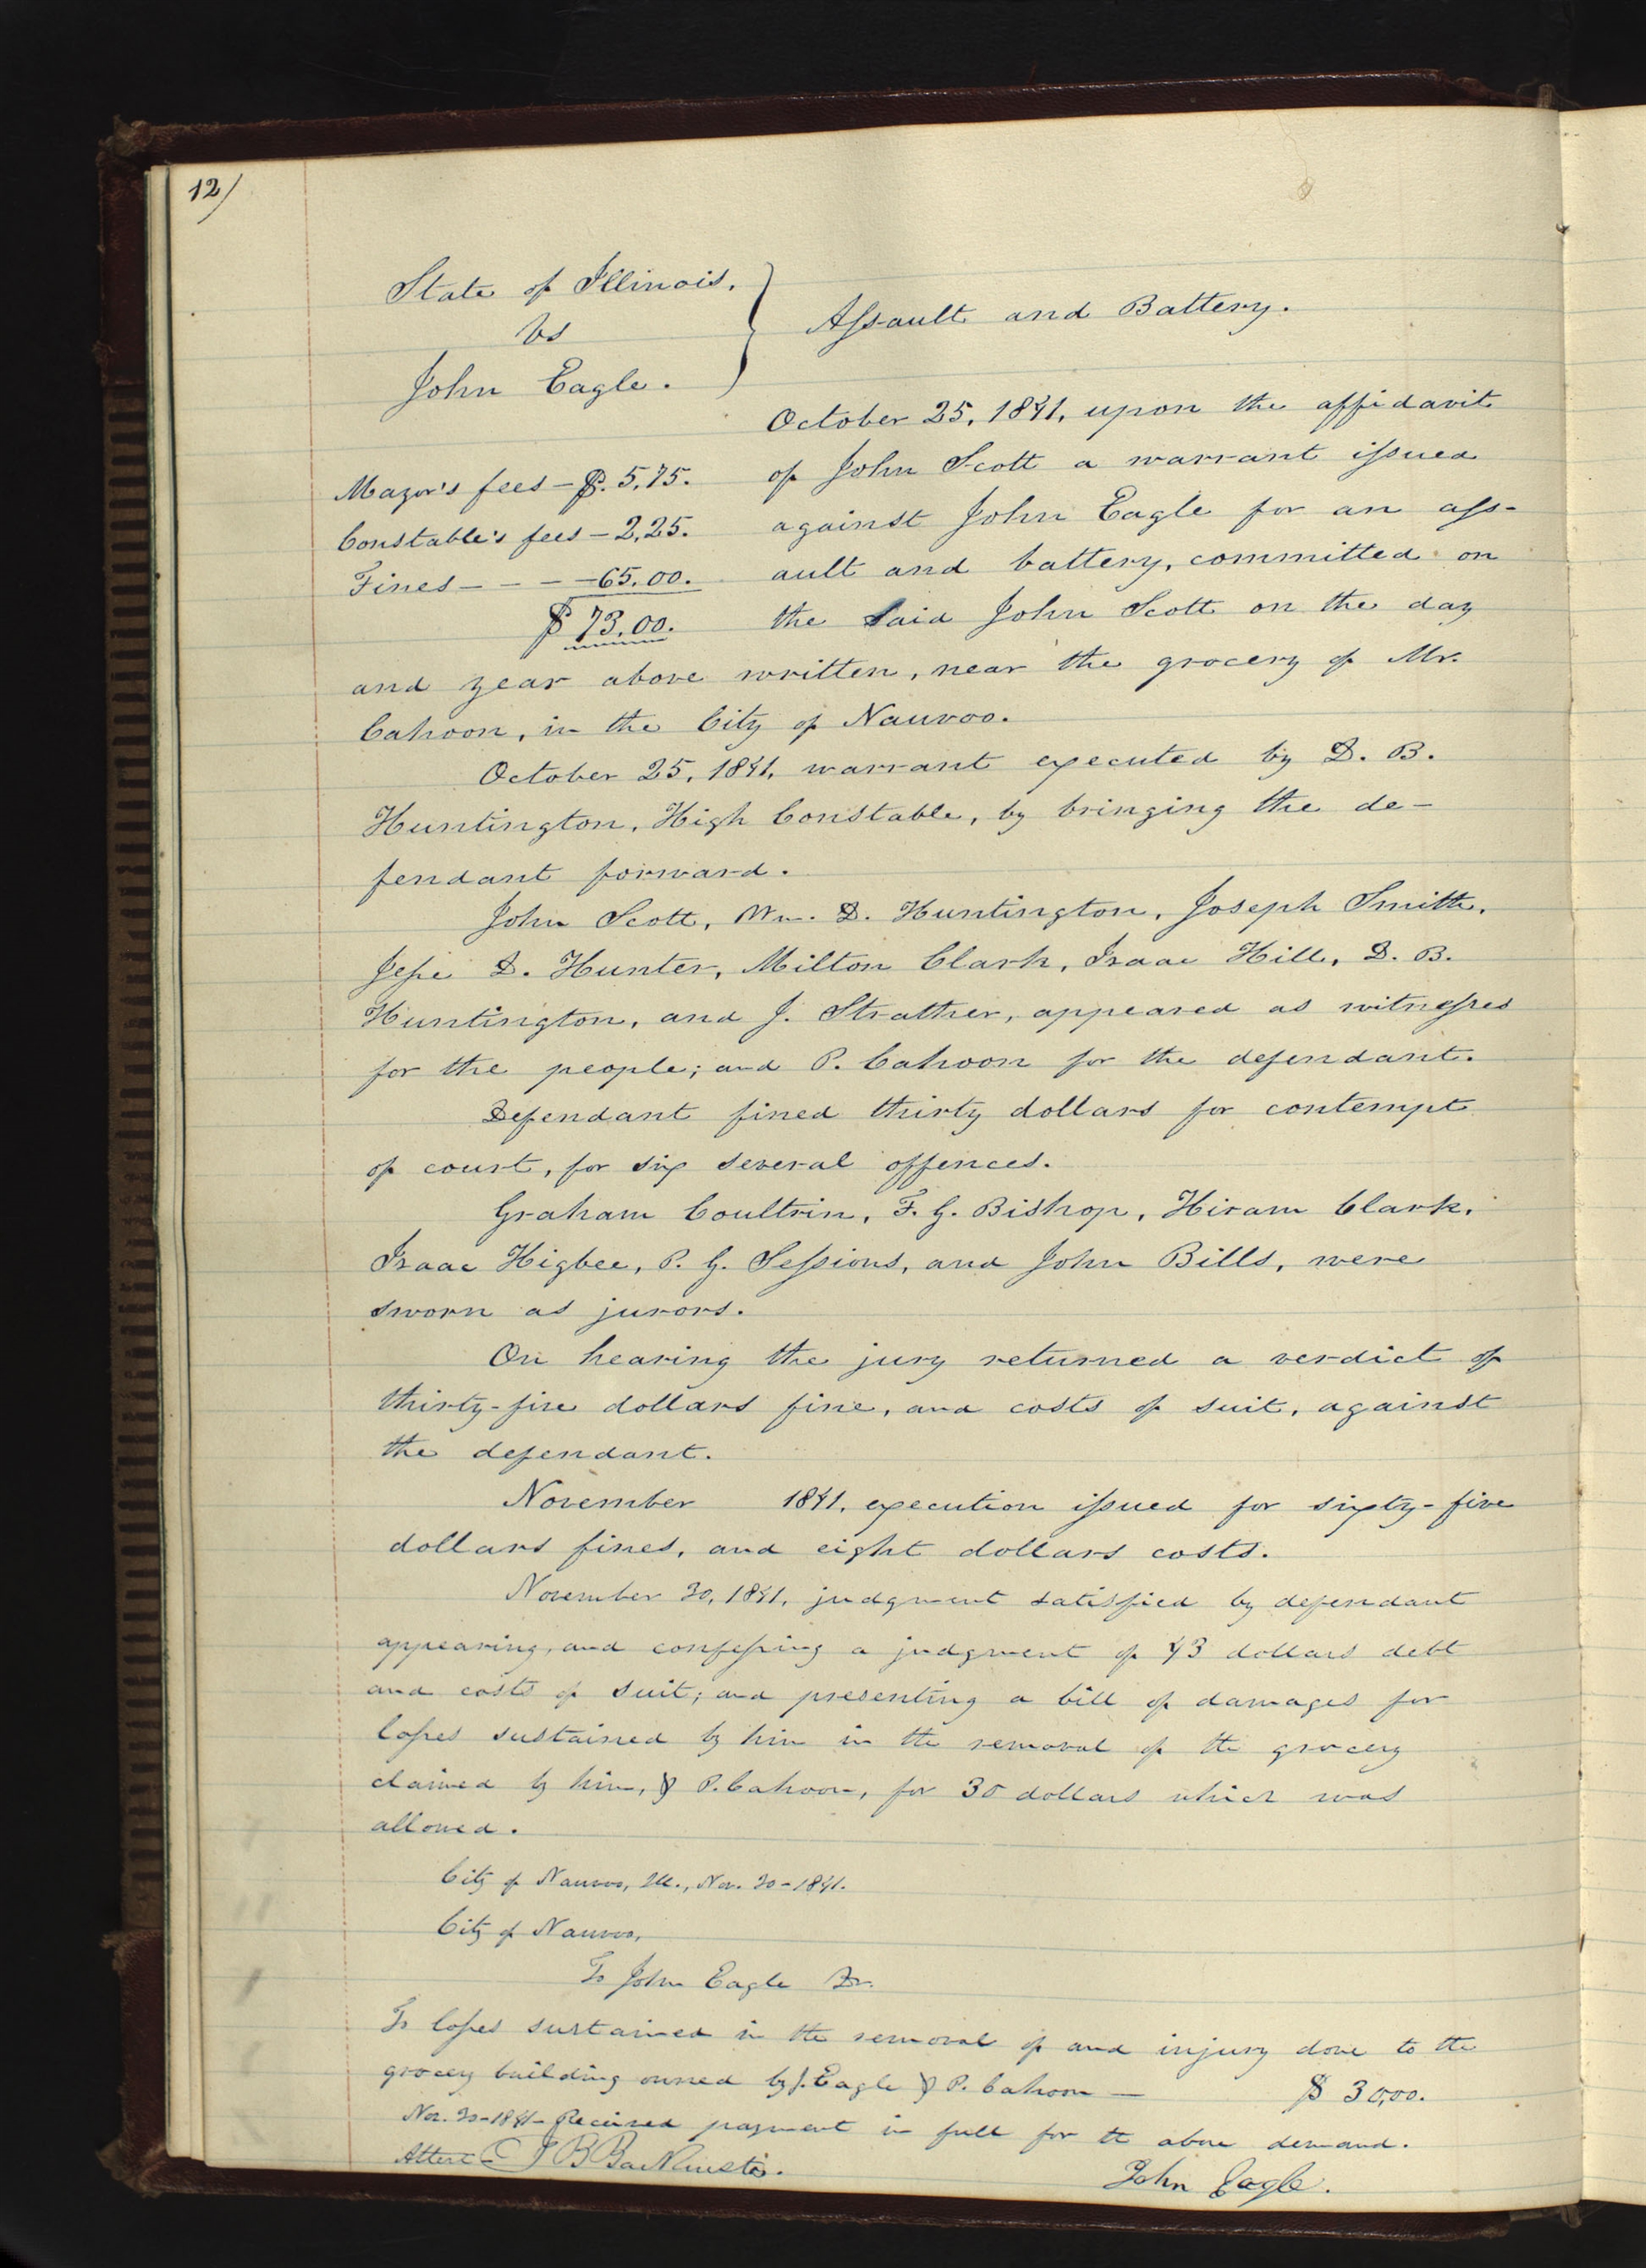 12/
State of Illinois.
vs
John Eagle.
Assault and Battery.
October 25, 1841, upon the affidavit
Mayor's fees — $. 5,75.
of John Scott a warrant issued
Constable's fees — 2,25.
against John Eagle for an ass-
Fines — — — — 65.00.
ault and battery, committed on
$ 73,00.
the said John Scott on the day
and year above written, near the grocery of Mr.
Cahoon, in the City of Nauvoo.
October 25, 1841, warrant executed by D. B.
Huntington, High Constable, by bringing the de-
fendant forward.
John Scott, Wm. D. Huntington, Joseph Smith,
Jesse D. Hunter, Milton Clark, Isaac Hill, D. B.
Huntington, and J. Strather, appeared as witnesses
for the people; and P. Cahoon for the defendant.
Defendant fined thirty dollars for contempt
of court, for six several offences.
Graham Coultrin, F. G. Bishop, Hiram Clark,
Isaac Higbee, P. G. Sessions, and John Bills, were
sworn as jurors.
On hearing the jury returned a verdict of
thirty-five dollars fine, and costs of suit, against
the defendant.
November 1841, execution issued for sixty-five
dollars fines, and eight dollars costs.
November 30, 1841, judgment satisfied by defendant
appearing, and confessing a judgment of 43 dollars debt
and costs of suit; and presenting a bill of damages for
losses sustained by him in the removal of the grocery
claimed by him, & P. Cahoon, for 30 dollars which was
allowed.
City of Nauvoo, Ill., Nov. 30 - 1841.
City of Nauvoo,
To John Eagle Dr.
To losses sustained in the removal of and injury done to the
grocery building owned by J. Eagle & P. Cahoon — $ 30,00.
Nov. 30 - 1841 - Received payment in full for the above demand.
Attest J B Backenstos.
John Eagle.